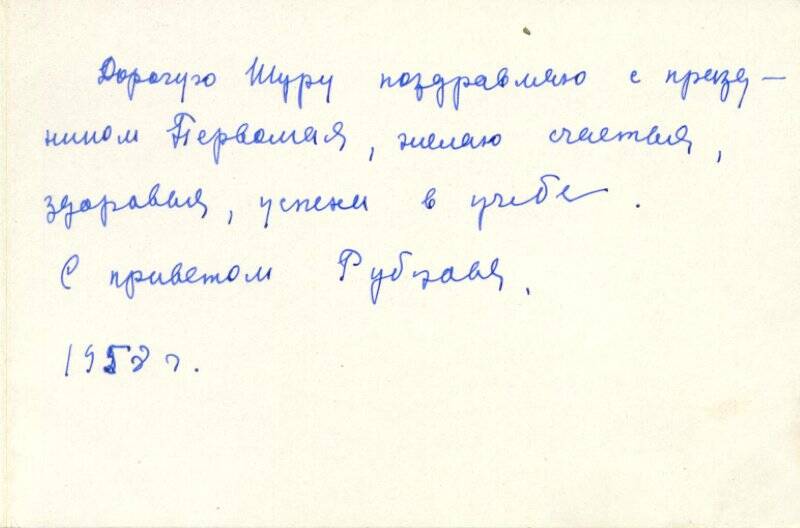 Дорогую Шуру поздравляю с празд-
ником Первомая, желаю счастья,
здоровья, успехи в учебе.
С приветом
1958 г.